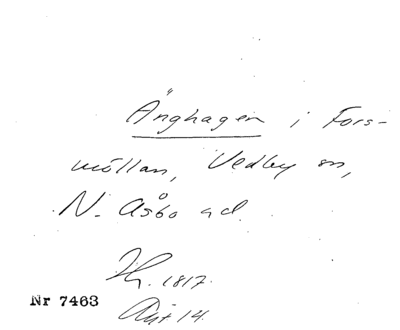 Änghagen i Fors-
möllan, Vedby sn,
N. Åsbo hd.
1817.
Nr 7463
14.